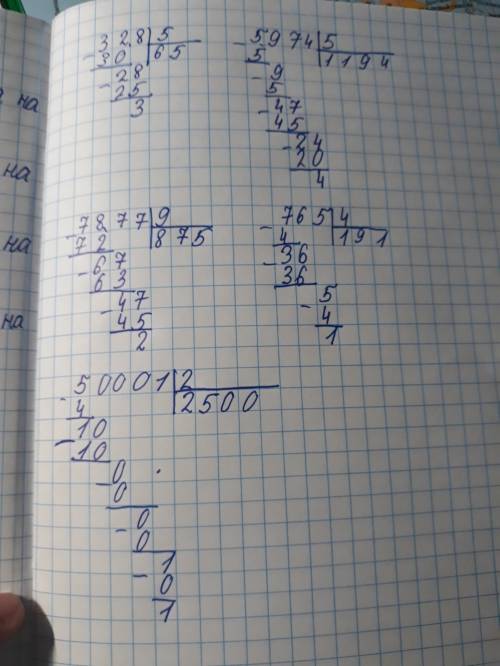 на
на
на
на
328|5
-30 65
-28
25
3
-5974|5
5 1194
-9
5
-47
45
-24
20
4
-7877|9
72 875
-67
63
-47
45
2
-765|4
4 191
-36
36
-5
4
1
-50001|2
4 2500
-10
10
-0
0
-0
0
-1
0
1